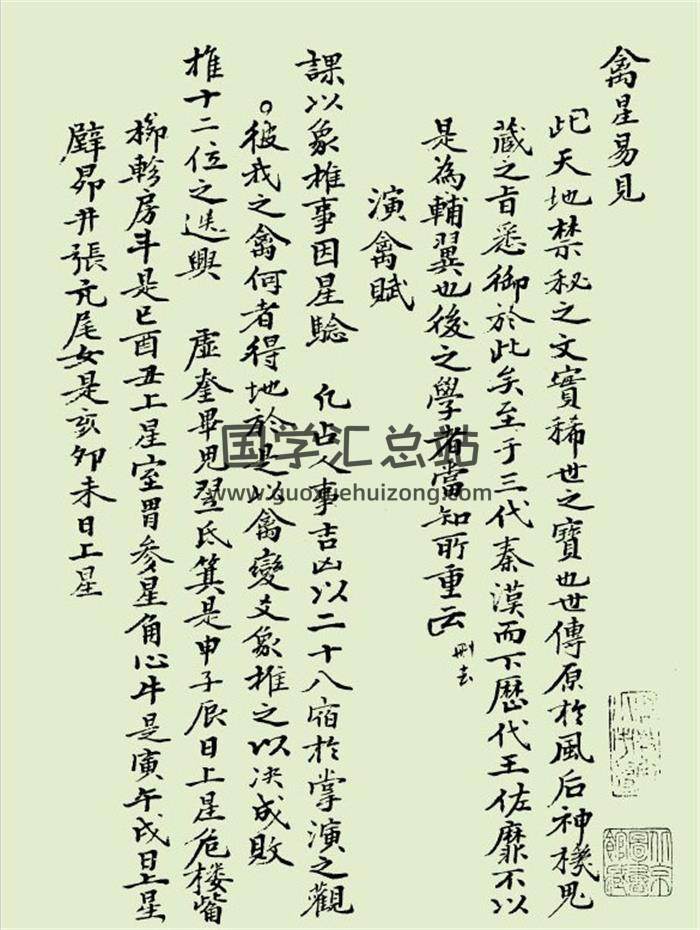 禽星易見
此天地禁秘之文實稀世之寶也世傳原於風后神機鬼
藏之旨悉御於此矣至于三代秦漢而下歷代王佐靡不以
是為輔翼也後之學者當知所重云刪去
演禽賦
課以象推事因星驗 凢占人事吉凶以二十八宿於掌演之觀
彼我之禽何者得地於是以禽變爻象推之以决成敗
推十二位之迭興 虛奎畢鬼翌氐箕是申子辰日上星危樓觜
柳軫房斗是巳酉丑上星室胃參星角心牛是寅午戌日上星
壁昴井張亢尾女是亥卯未日上星
国学汇总站
www.guoxuehuizong.com